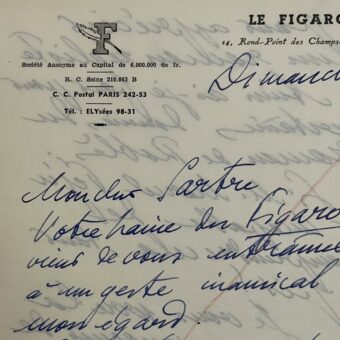 LE FIGARO
14, Rond-Point des Champs
F
Société Anonyme au Capital de 6.000.000 de fr.
R. C. Seine 210.663 B
C. C. Postal PARIS 242-53
Tél. : ELYsées 98-31
Dimanc
Mon cher Sartre
Votre haine du Figaro
vient de vous entraîner
à un geste inamical à
mon égard.